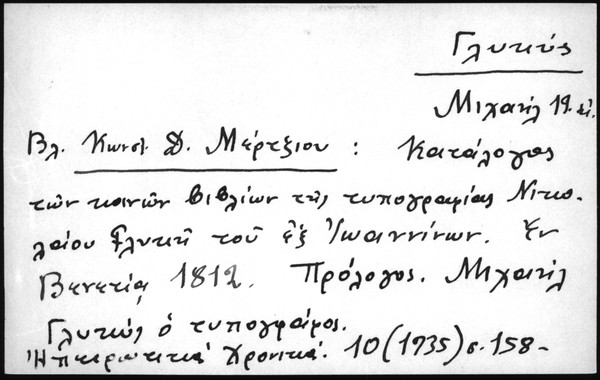 Γλυκύς
Μιχαήλ 19. αἰ.
Βλ. Κωνσ. Δ. Μέρτζιου : Κατάλογος
τῶν κοινῶν βιβλίων τῆς τυπογραφίας Νικο-
λαίου Γλυκῆ τοῦ ἐξ Ἰωαννίνων. Ἐν
Βενετίᾳ 1812. Πρόλογος. Μιχαήλ
Γλυκύς ὁ τυπογράφος.
Ἠπειρωτικά Χρονικά. 10 (1935) σ. 158-